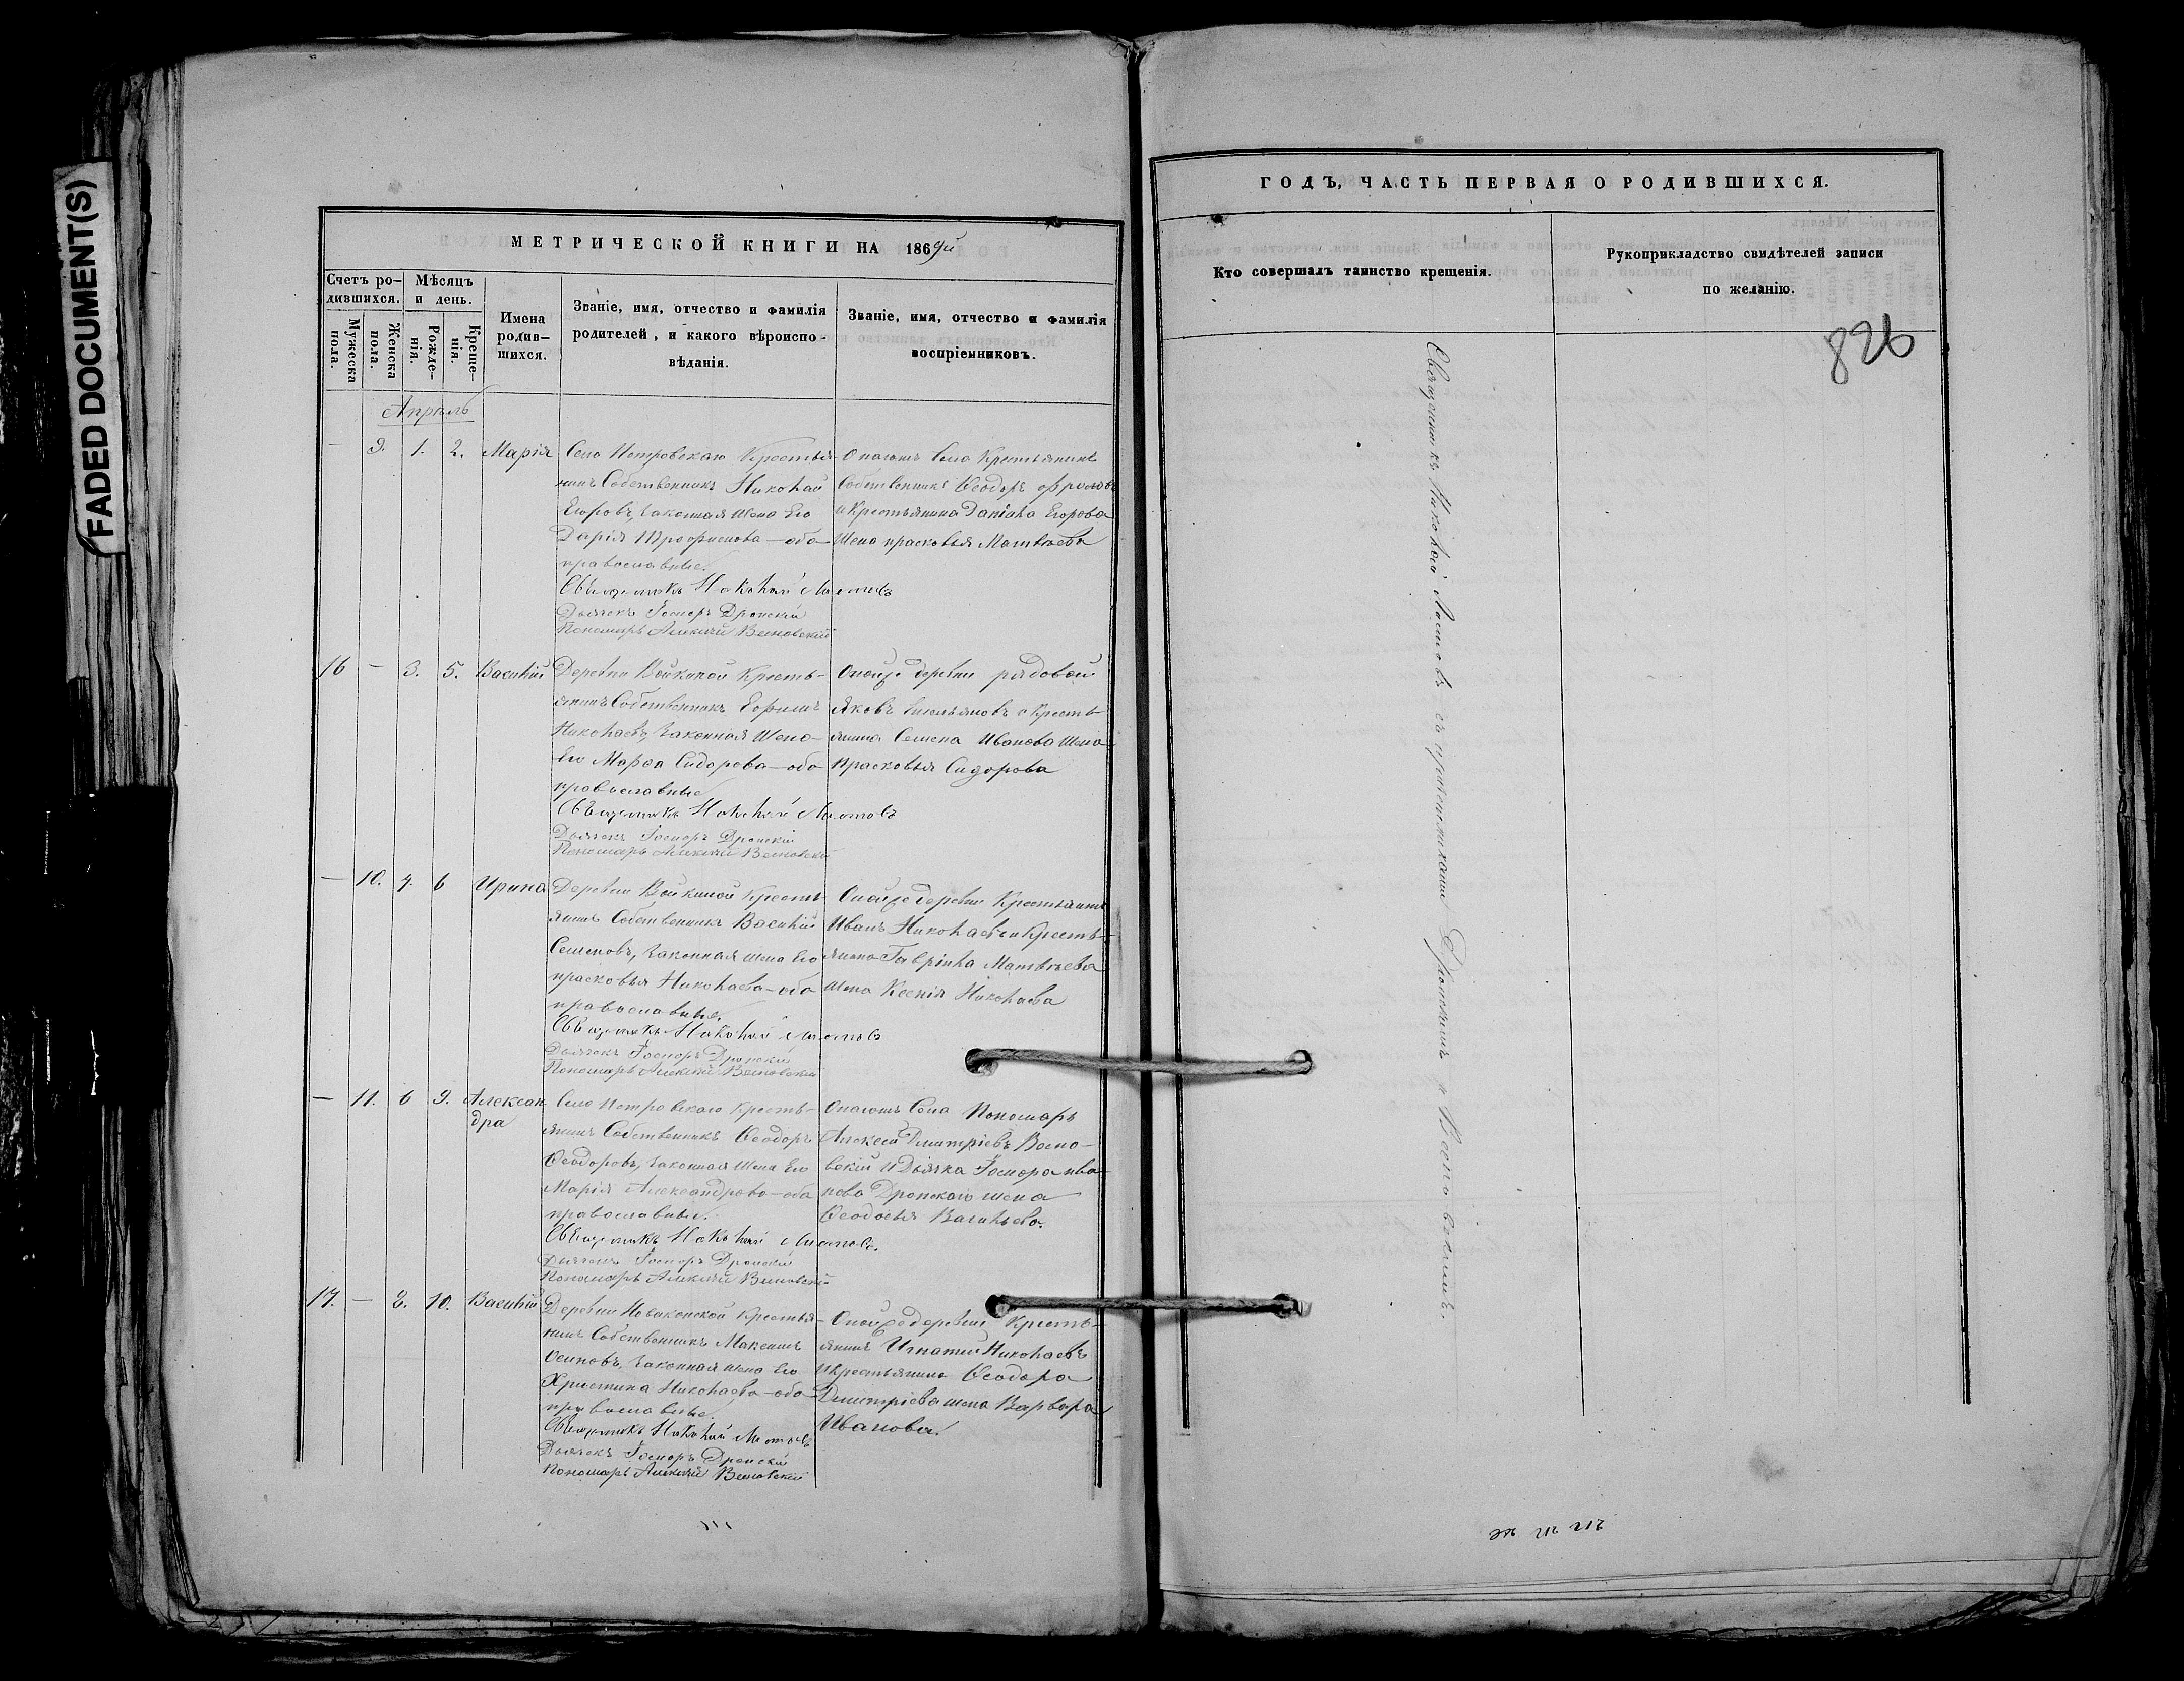 FADED DOCUMENT(S)
МЕТРИЧЕСКОЙ КНИГИ НА 1869й
Счетъ ро-
дившихся.
Мужеска
пола.
Женска
пола.
Мѣсяцъ
и день.
Рожде-
нія.
Креще-
нія.
Имена
родив-
шихся.
Званіе, имя, отчество и фамилія
родителей, и какого вѣроиспо-
вѣданія.
Званіе, имя, отчество и фамилія
воспріемниковъ.
Апрѣль
— 9. 1. 2. Марія
Село Петровскаго Крестья-
нинъ Собственникъ Николай
Егоровъ, законная жена Его
Дарія Трофимова — оба
православные.
Священникъ Николай
Дьячекъ Іосифъ Дронскій
Пономарь Алексѣй Весновскій
Онагожъ Села Крестьянинъ
Собственникъ Ѳеодоръ Фроловъ
и Крестьянина Даніила Егорова
жена Прасковья Матвѣева
16 — 3. 5. Василій
Деревни Войкиной Кресть-
янинъ Собственникъ Ефимъ
Николаевъ, законная жена
Его Марѳа Сидорова — оба
православные
Священникъ Николай
Дьячекъ Іосифъ Дронскій
Пономарь Алексѣй Весновскій
Онойже деревни рядовой
Яковъ Емельяновъ и Кресть-
янина Семена Иванова жена
Прасковья Сидорова
— 10. 4. 6 Ирина
Деревни Войкиной Кресть-
янинъ Собственникъ Василій
Семеновъ, законная жена Его
Прасковья Николаева — оба
православные.
Священникъ Николай
Дьячекъ Іосифъ Дронскій
Пономарь Алексѣй Весновскій
Онойже деревни Крестьянинъ
Иванъ Николаевъ и Кресть-
янина Гавріила Матвѣева
жена Ксенія Николаева
— 11. 6 9. Алексан
дра
Село Петровскаго Кресть-
янинъ Собственникъ Ѳеодоръ
Ѳеодоровъ, законная жена Его
Марія Александрова — оба
православные.
Священникъ Николай
Дьячекъ Іосифъ Дронскій
Пономарь Алексѣй Весновскій
Онагожъ Села Пономарь
Алексѣй Дмитріевъ Весно-
вскій и Дьячка Іосифа Ива-
нова Дронскаго жена
Ѳеодосья Васильева.
17. — 8. 10. Василій
Деревни Крестья-
нинъ Собственникъ Максимъ
Осиповъ, законная жена Его
Христина Николаева — оба
православные.
Священникъ Николай
Дьячекъ Іосифъ Дронскій
Пономарь Алексѣй Весновскій
Онойже деревни Кресть-
янинъ Игнатій Николаевъ
и Крестьянина Ѳеодора
Дмитріева жена Варвара
Иванова.
ГОДЪ, ЧАСТЬ ПЕРВАЯ О РОДИВШИХСЯ.
Кто совершалъ таинство крещенія.
Рукоприкладство свидѣтелей записи
по желанію.
826
Священникъ Николай съ причетниками Дронскимъ и Весновскимъ.